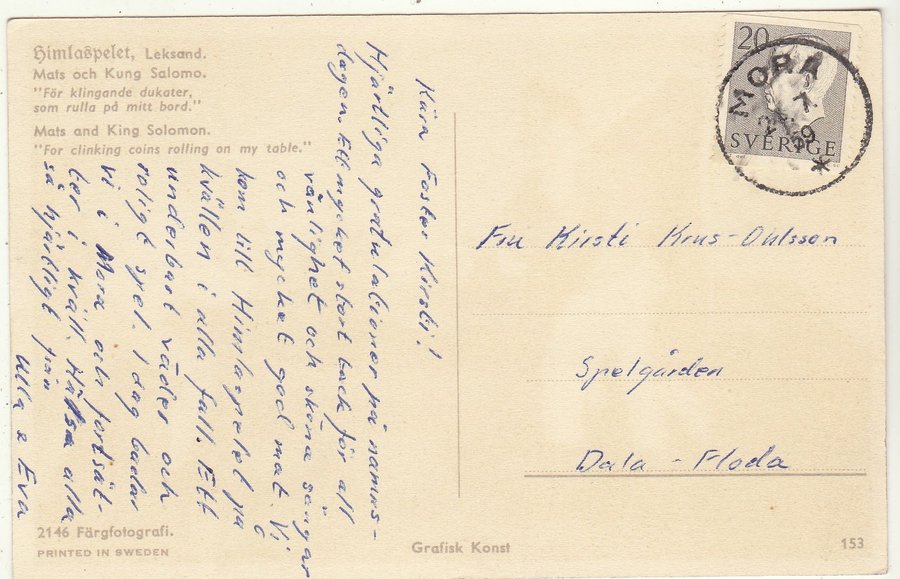 Himlaspelet, Leksand.
Mats och Kung Salomo.
"För klingande dukater,
som rulla på mitt bord."
Mats and King Solomon.
"For clinking coins rolling on my table."
Kära Faster Kirsti!
Hjärtliga gratulationer på namns-
dagen. Ett mycket stort tack för all
vänlighet och sköna sängar
och mycket god mat. Vi
kom till Himlaspelet på
kvällen i alla fall. Ett
underbart väder och
roligt spel. I dag badar
vi i Mora och fortsät-
ter i kväll. Hälsa alla
så hjärtligt från
Ulla & Eva
20
SVERIGE
MORA
Fru Kirsti Krus-Ohlsson
Spelgården
Dala-Floda
2146 Färgfotografi.
PRINTED IN SWEDEN
Grafisk Konst
153